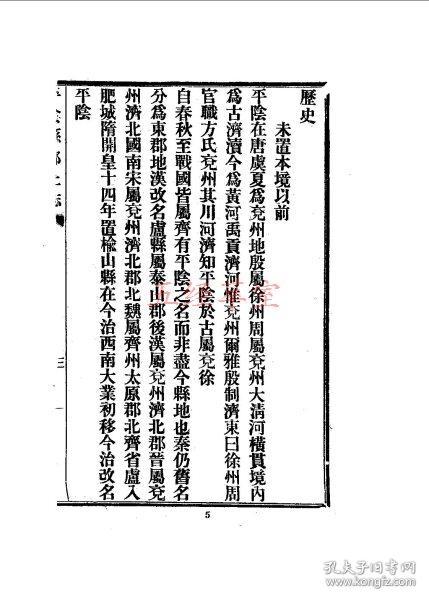 歷史
未置本境以前
平陰在唐虞夏爲兗州地殷屬徐州周屬兗州大淸河橫貫境內
爲古濟瀆今爲黃河禹貢濟河惟兗州爾雅殷制濟東曰徐州周
官職方氏兗州其川河濟知平陰於古屬兗徐
自春秋至戰國皆屬齊有平陰之名而非盡今縣地也秦仍舊名
分爲東郡地漢改名盧縣屬泰山郡後漢屬兗州濟北郡晉屬兗
州濟北國南宋屬兗州濟北郡北魏屬齊州太原郡北齊省盧入
肥城隋開皇十四年置楡山縣在今治西南大業初移今治改名
平陰
三
5
孔夫子旧书网